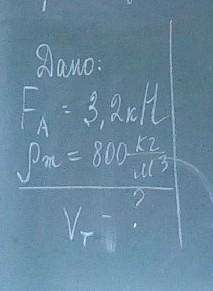 Дано:
F_A = 3,2кН
ρ_т = 800 кг/м³
V_т = ?